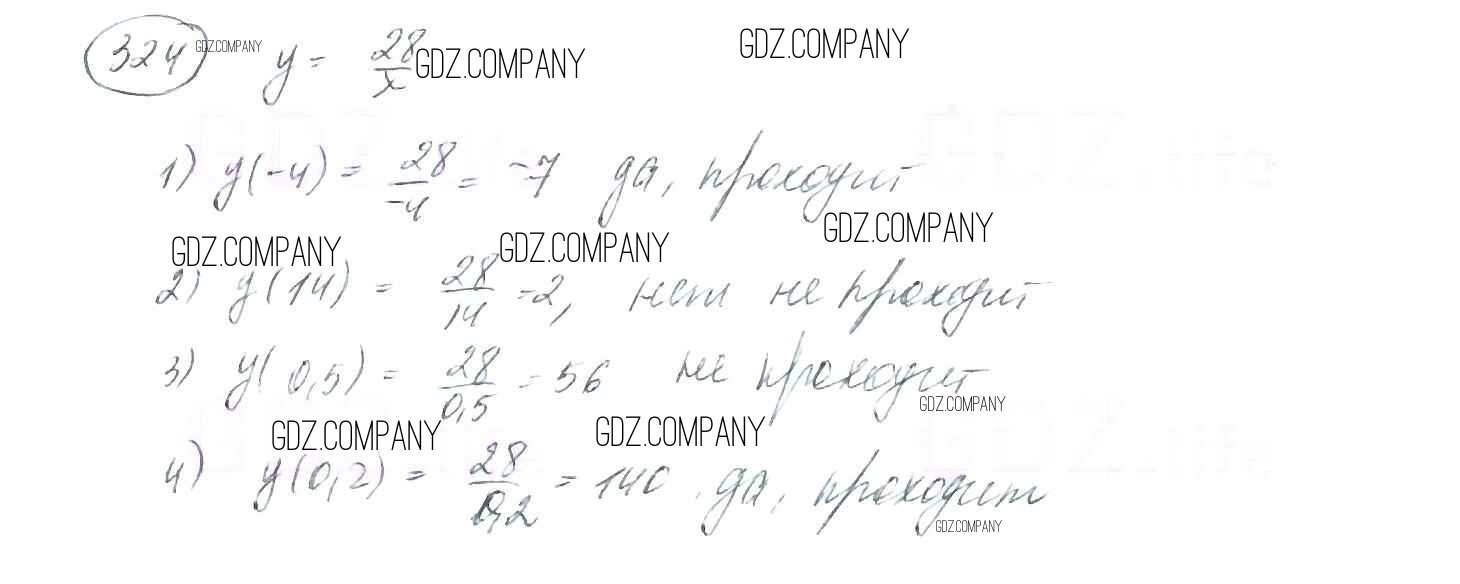 324 GDZ.COMPANY y = 28/x GDZ.COMPANY GDZ.COMPANY
GDZ.life GDZ.life
1) y(-4) = 28/-4 = -7 да, проходит
GDZ.COMPANY GDZ.COMPANY GDZ.COMPANY
2) y(14) = 28/14 = 2, нет не проходит
3) y(0,5) = 28/0,5 = 56 не проходит
GDZ.COMPANY
GDZ.life GDZ.life
GDZ.COMPANY GDZ.COMPANY
4) y(0,2) = 28/0,2 = 140, да, проходит
GDZ.COMPANY